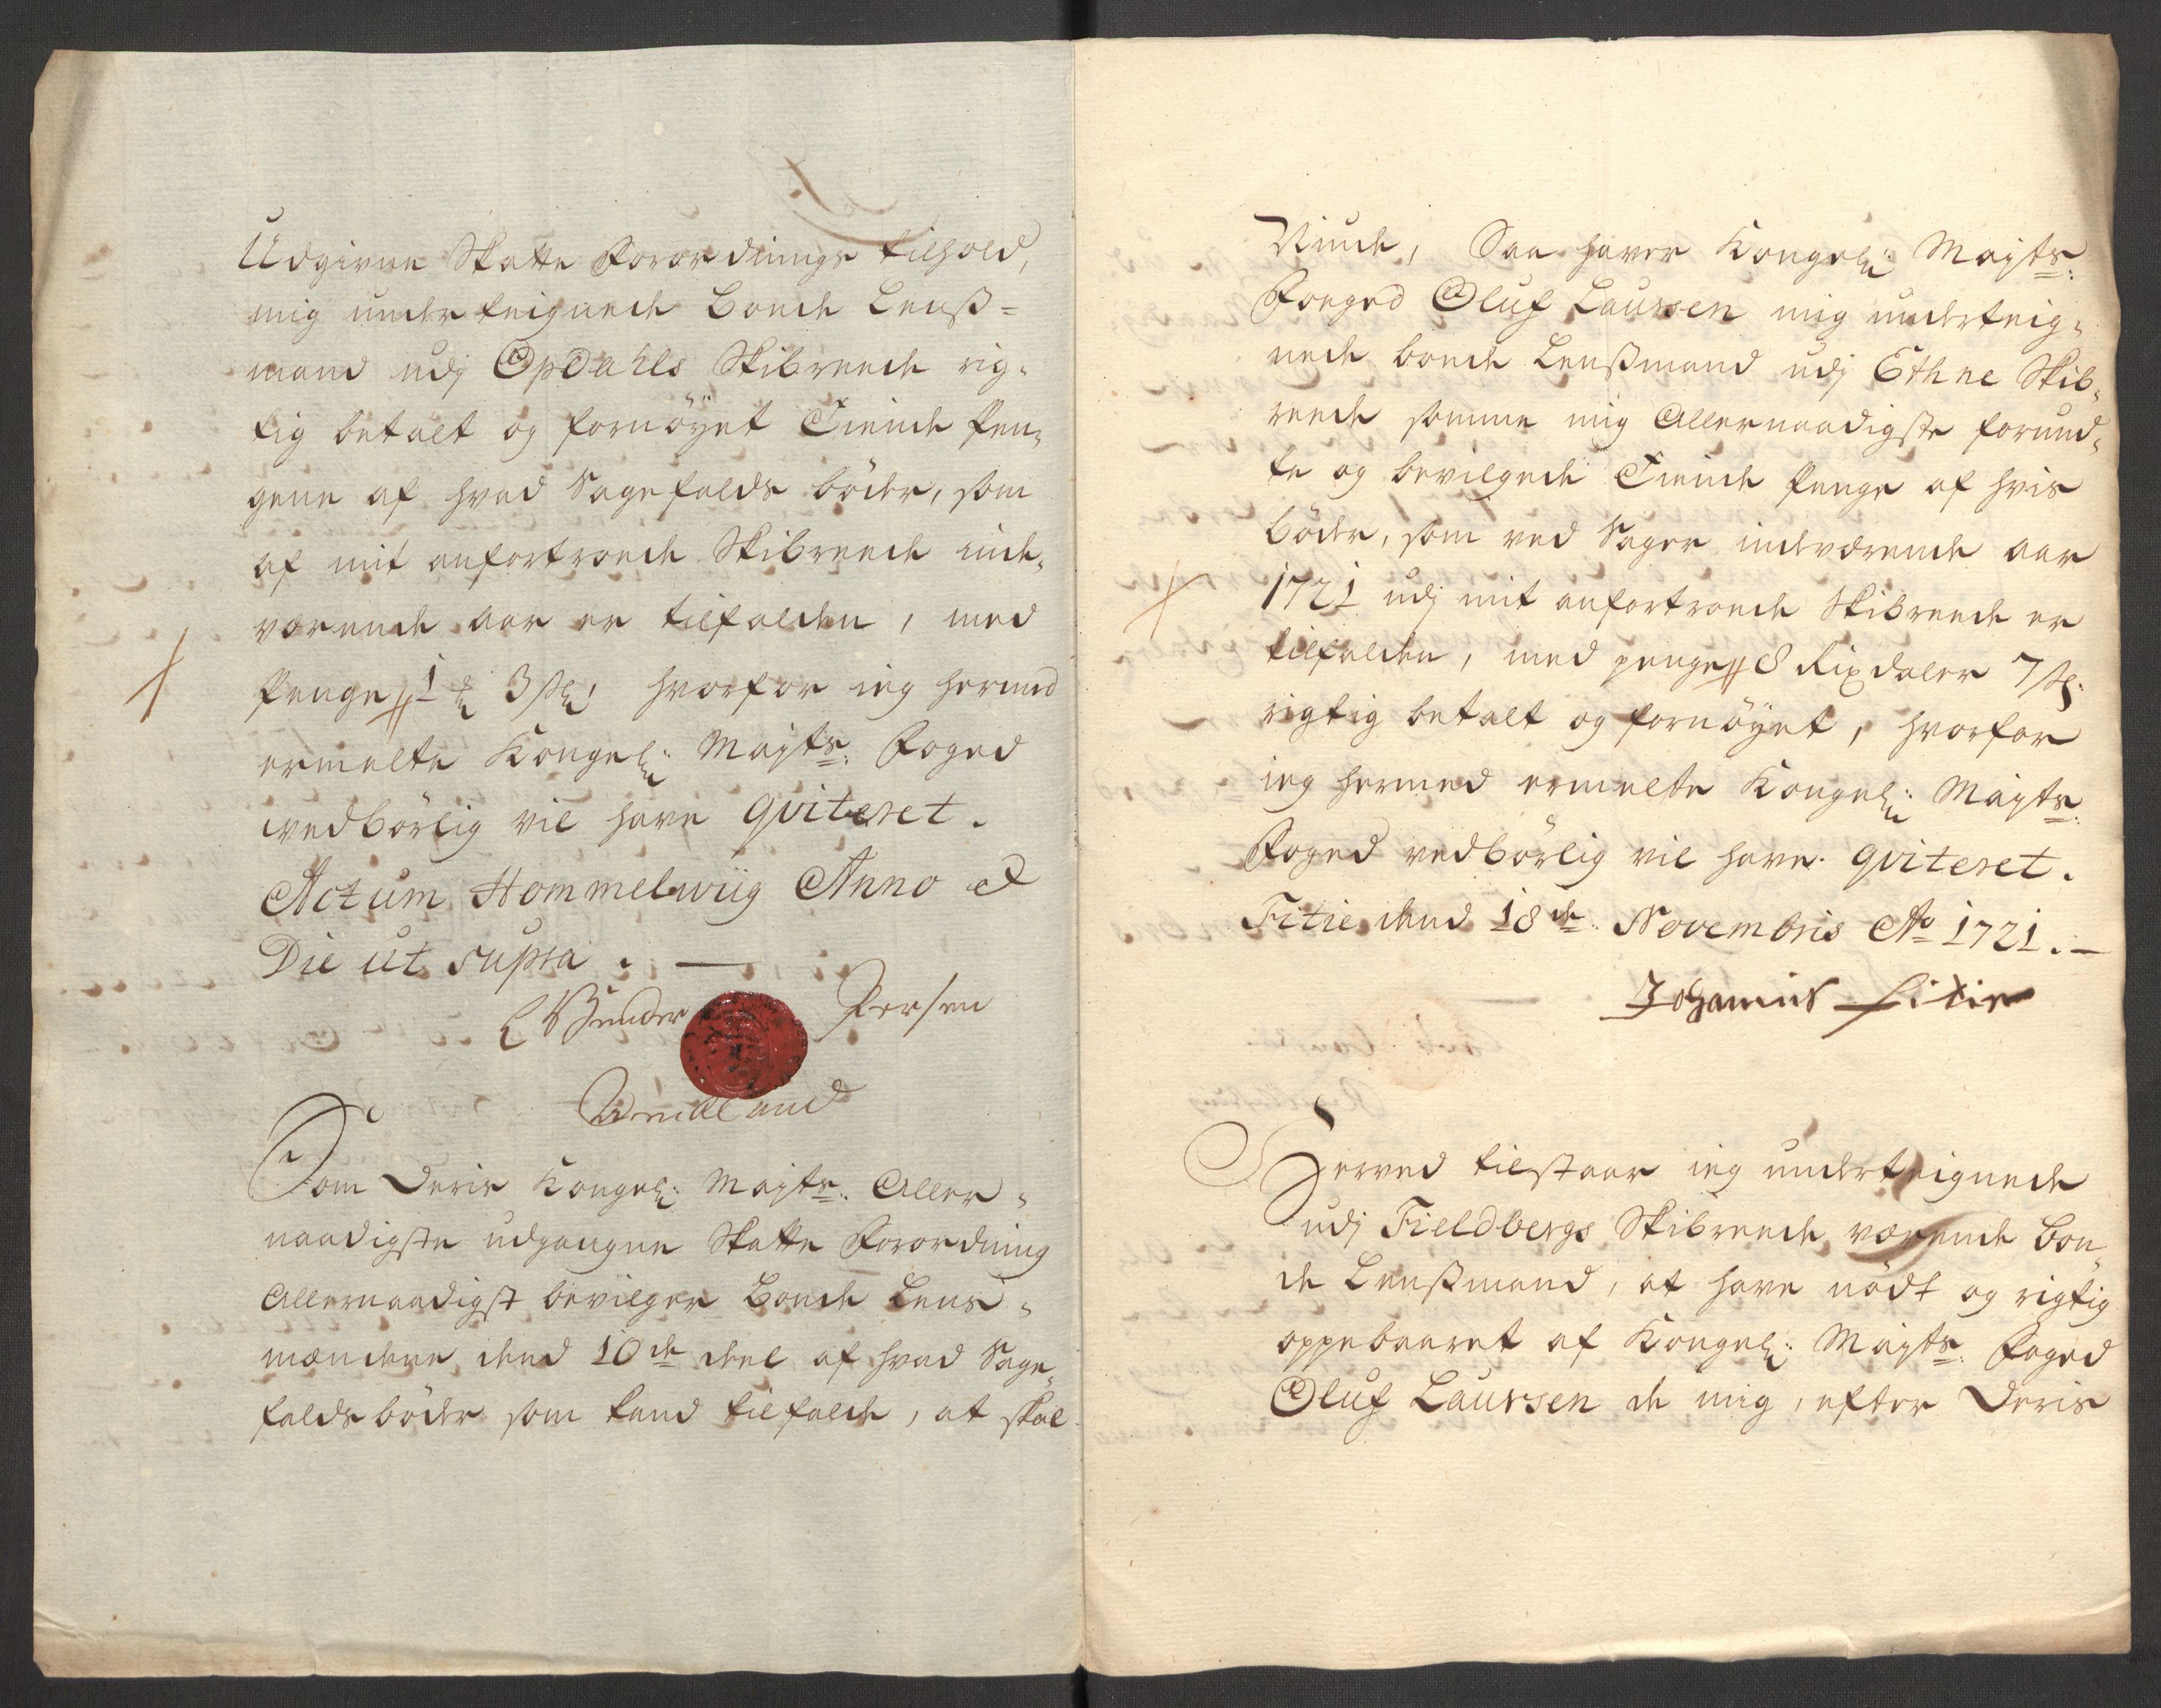 Udgivne Skatte Forordnings tilhold,
mig underteignede Bonde Lenß=
mand udj Opdahls Skibreede rig=
tig betalt og fornöyet Tiende Pen=
gene af hvad Sagefalds böder, som
af mit anfortroede Skibreede inde=
værende aar er tilfalden, med
Penge 1 rdl 3 sk, hvorfor ieg hermed
ermelte Kongel: Mayts: Foged
vedbörlig vil have qviteret.
Actum Hommelwiig Anno et
Die ut supra. —
Persen
Som Deris Kongel: Mayts: Aller=
naadigste udgangne Skatte Forordning
Allernaadigst bevilger Bonde Lens=
mændene dend 10de deel af hvad Sage=
falds böder som kand tilfalde, at skal
Niude, Saa haver Kongel: Mayts:
Foeged Oluf Laursen mig underteig=
nede bonde Lenßmand udj Ethne Skib=
reede somme mig Allernaadigste forund=
te og bevilgede Tiende Penge af hvis
böder, som ved Sager indeværende aar
1721 udj mit anfortroede Skibreede er
tilfalden, med penge 8 Rixdaler 7 sk:
rigtig betalt og fornöyet, hvorfor
ieg hermed ermelte Kongel: Mayts:
Foged vedbörlig vil have qviteret.
Fitie dend 18de Novembris Ao 1721. —
Johannis Fitie
Herved tilstaar ieg underteignede
udj Fieldbergs Skibreede værende Bon=
de Lenßmand, at have nödt og rigtig
oppebaaret af Kongel: Mayts: Foged
Oluf Laursen de mig, efter Deris